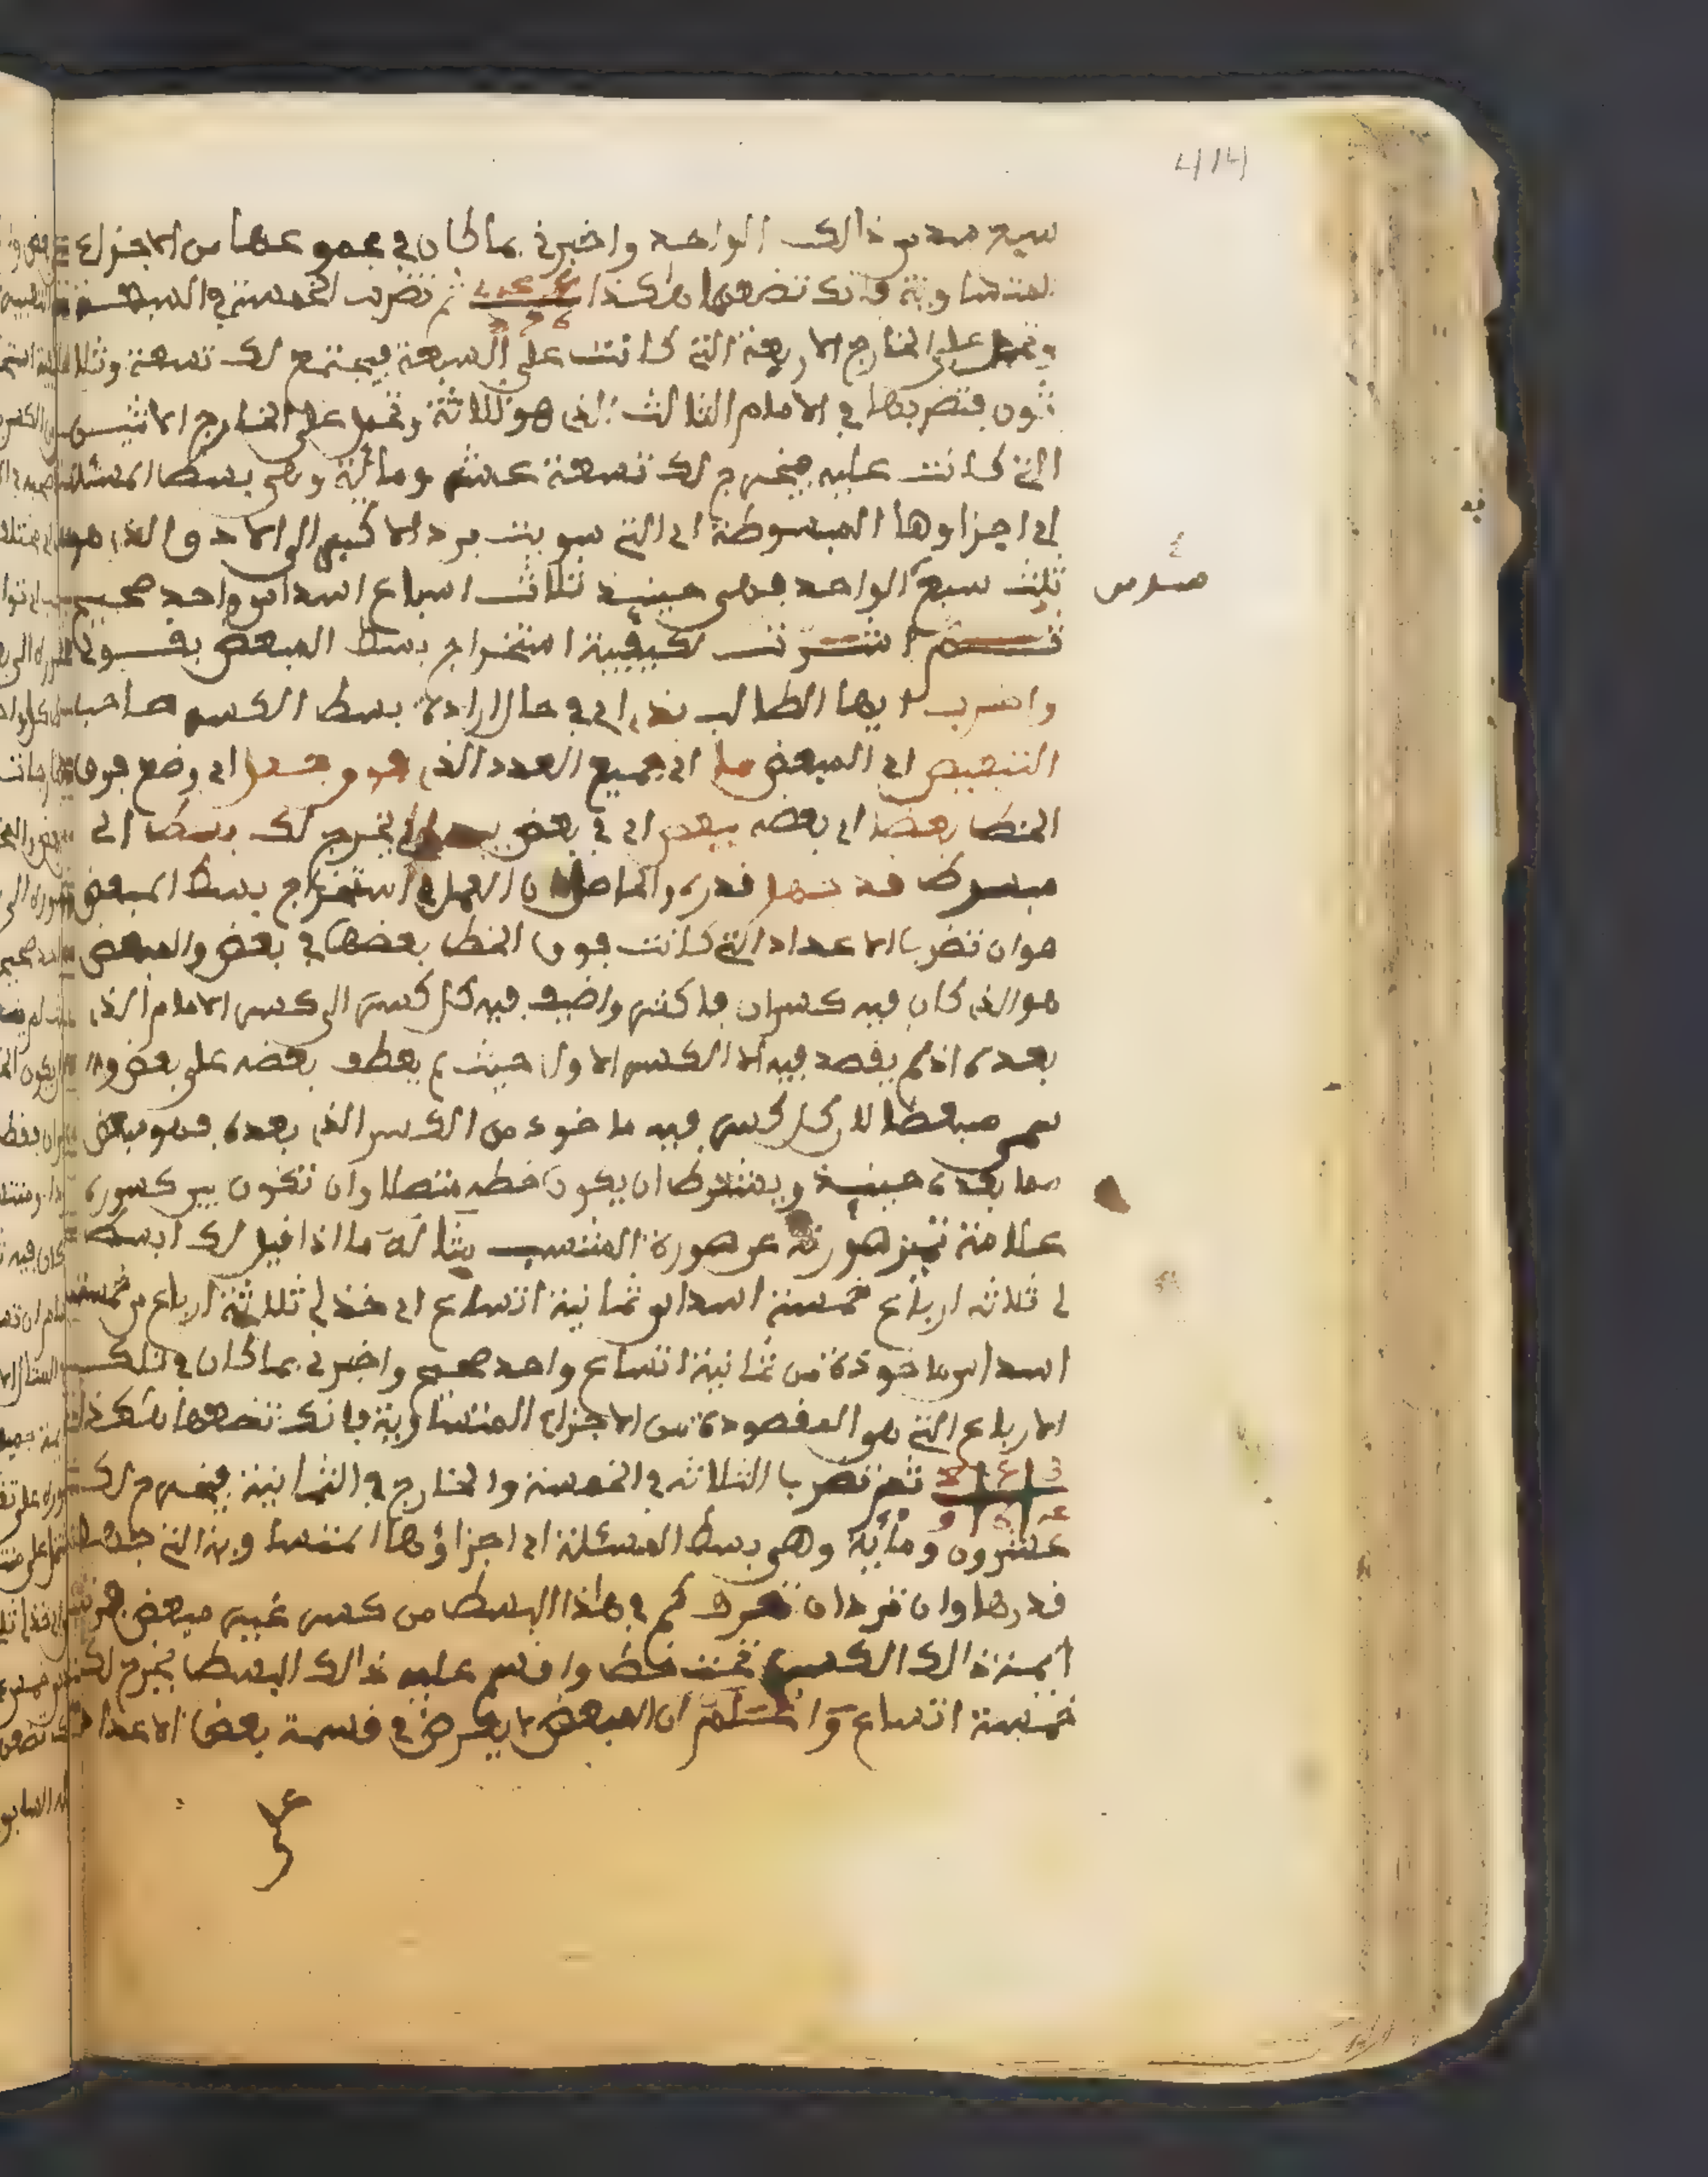 414
سبع سدس ذالك الواحد واخبرني بما كان في مجموعها من الاجزاء
المتساوية فانك تضعها هكذا ثم تضرب الخمسة في السبعة
وتحمل على الخارج الاربعة التي كانت على السبعة فيجتمع لك تسعة وثلا
ثون فتضربها في الامام الثالث الذي هو ثلاثة وتحمل على الخارج الاثنين
التي كانت عليه فيخرج لك تسعة عشر ومائة وهي بسط المسئلة
اي اجزاوها المبسوطة اي التي سويت برد الاكبر الى الادق الذي هو
ثلث سبع الواحد فهي حينئذ ثلاث اسباع اسداس واحد صحيح
سدس
ثم اشرت لكيفية استخراج بسط المبعض بقولي
واضرب ايها الطالب بذي اي في حال ارادة بسط الكسر صاحب
التبعيض اي المبعض ما اي جميع العدد الذي هو وضعا اي وضع فوق
الخط بعضا اي بعضه ببعض اي في بعض يخرج لك بسط اي
مبسوط قد سما قدره والحاصل ان العمل في استخراج بسط المبعض
هو ان تضرب الاعداد التي كانت فوق الخط بعضها في بعض والمبعض
هو الذي كان فيه كسران فاكثر واضيف فيه كل كسر الى كسر الامام الذي
بعده اذ لم يقصد فيه الا الكسر الاول حيث لم يعطف بعضه على بعض وا
سمي مبعضا لان كل كسر فيه ماخوذ من الكسر الذي بعده فهو مبعض
مما بعده حينئذ ويشترط ان يكون خطه متصلا وان تكون بين كسوره
علامة تميز صورته عن صورة المنتسب مثاله ما اذا قيل لك ابسط
لي ثلاثة ارباع خمسة اسداس ثمانية اتساع اي خذ لي ثلاثة ارباع من خمسة
اسداس ماخوذة من ثمانية اتساع واحد صحيح واخبرني بما كان في تلك
الارباع التي هو المقصودة من الاجزاء المتساوية فانك تضعها هكذا
ثم تضرب الثلاثة في الخمسة والخارج في الثمانية فيخرج لك
عشرون ومائة وهي بسط المسئلة اي اجزاؤها المتساوية التي
قدرها وان ترد ان تعرف كم في هذا البسط من كسر غير مبعض
ايمة ذالك الكسر تحت خط واقسم عليه ذالك البسط يخرج لك
خمسة اتساع واعلم ان المبعض يعرض في قسمة بعض الاعداد
على